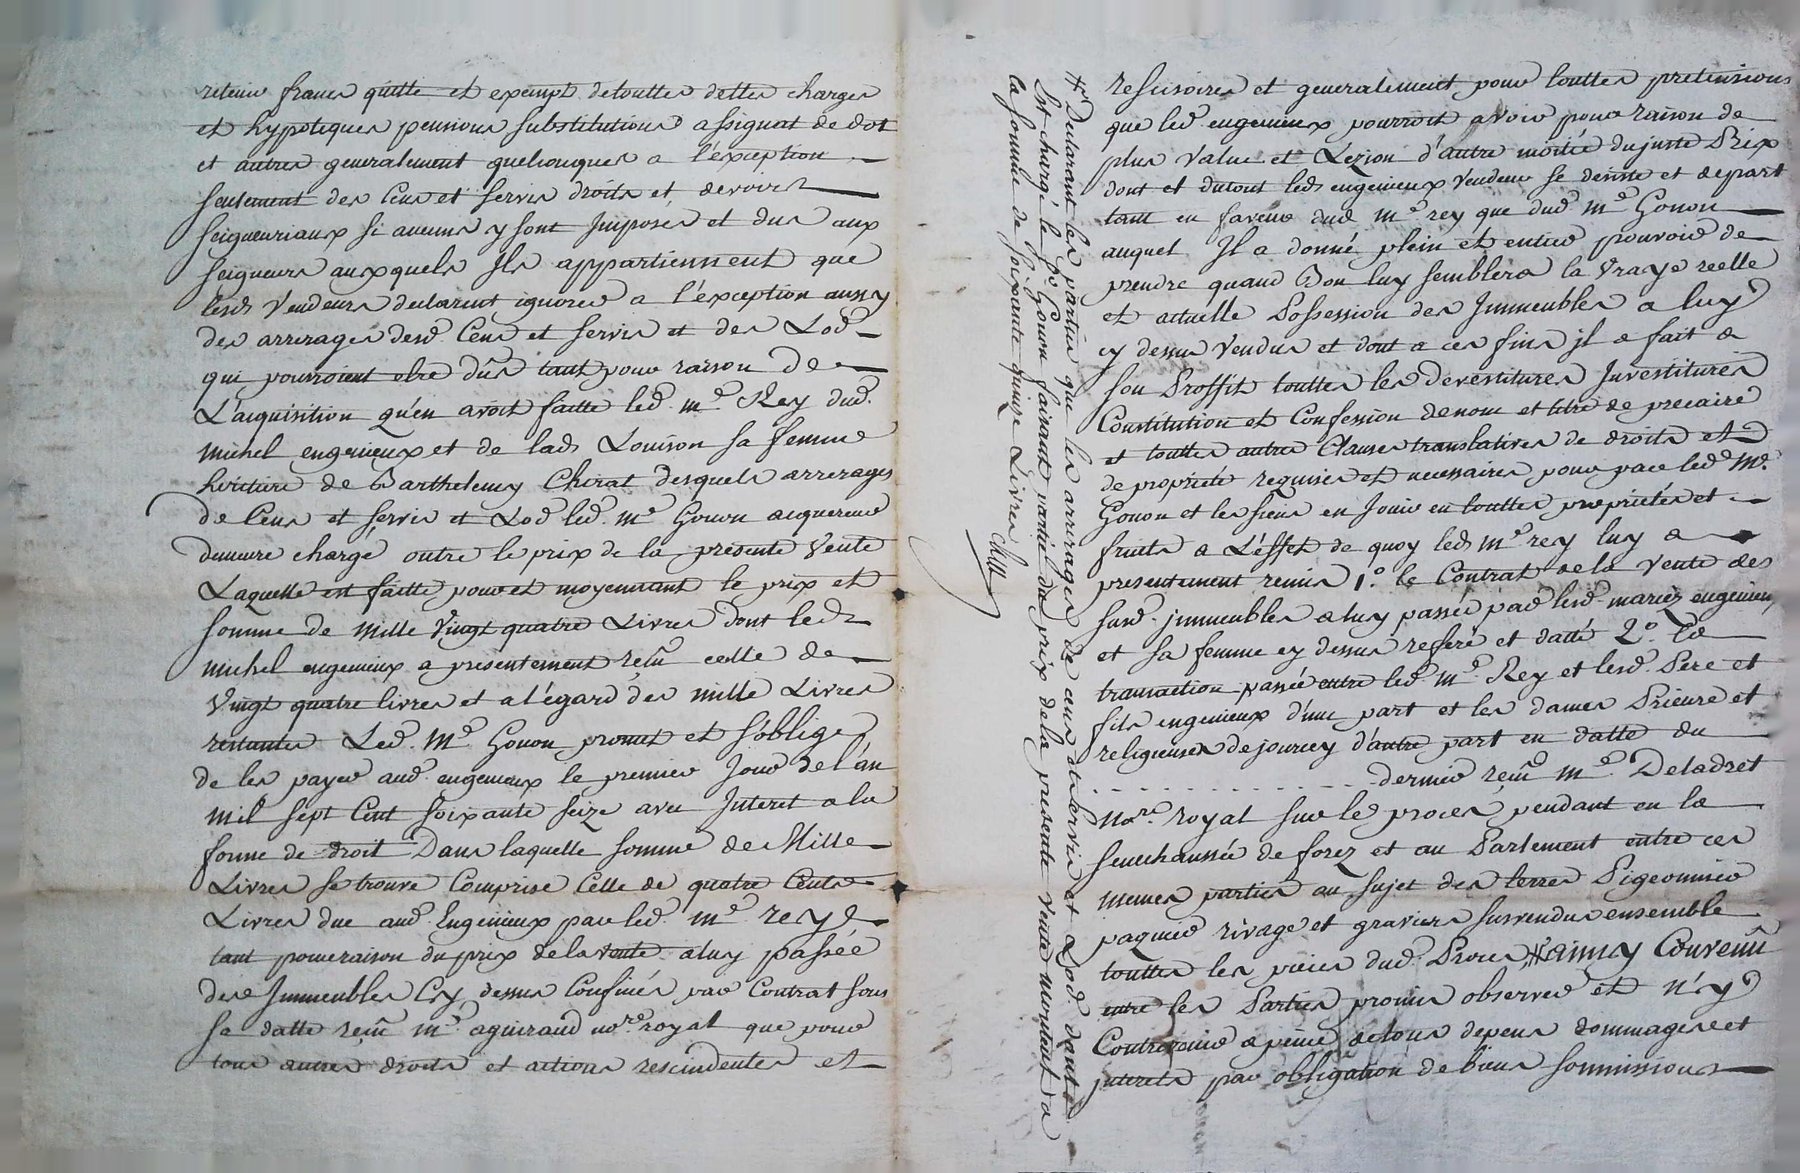 retenir francs quitte et exempt de touttes dettes charges
et hypoteques pensions substitutions assignat de dot
et autres generalement quelconques a l'exception
seulement des cens et servis droits et devoirs
seigneuriaux si aucuns y sont Imposés et dus aux
seigneurs auxquels Ils appartiennent que
lesds vendeurs declarent ignorer a l'exception aussy
des arrerages desd. Cens et servis et des Lods
qui pourroient etre dûs tant pour raison de
L'acquisition qu'en avoit faitte led. me Rey dud.
michel engenieux et de lade Louison sa femme
heritiere de Barthelemy Chirat desquels arrerages
de Cens et servis et Lods led. me Gonon acquereur
demeure chargé outre le prix de la presente vente
Laquelle est faitte pour et moyennant le prix et
somme de mille vingt quatre Livres dont led
michel engenieux a presentement reçu celle de
vingt quatre livres et a l'égard des mille Livres
restantes Led. me Gonon promet et s'oblige
de les payer aud. engenieux le premier Jour de l'an
mil sept Cent soixante seize avec Interet a la
forme de droit Dans laquelle somme de Mille
Livres se trouve Comprise Celle de quatre Cents
Livres due aud. Engenieux par led. me rey
tant pour raison du prix de la vente a luy passée
des Immeubles Cy dessus Confinés par Contrat sous
sa datte reçu me aguiraud nore royal que pour
tous autres droits et actions rescindentes et
rescisoires et generalement pour touttes pretensions
que led. engenieux pourroit avoir pour raison de
plus value et Lezion d'autre moitié du juste Prix
dont et du tout leds engenieux vendeur se desiste et depart
tant en faveur dud. me rey que dud. me Gonon
auquel Il a donné plein et entier pouvoir de
prendre quand Bon luy semblera la vraye reelle
et actuelle Possession des Immeubles a luy
cy dessus vendus et dont a ces fins il a fait a
son Proffit touttes les devestitures Investitures
Constitution et Confession de nom et titre de precaire
et touttes autres Clauses translatives de droits et
de propriété requises et necessaires pour par led. Me
Gonon et les siens en Jouir en touttes propriétés et
fruits a L'effet de quoy leds me rey luy a
presentement remis 1.o le Contrat de la vente des
susd. immeubles a luy passée par lesd. mariez engenieux
et sa femme cy dessus referé et datté 2.o La
transaction passée entre led. me Rey et lesd. Pere et
fils engenieux d'une part et les dames Prieure et
religieuses de jourcey d'autre part en datte du
. . . . . . . . . . . . dernier reçu me Deladret
nore royal sur le proces pendant en la
senechaussée de forez et au Parlement entre ces
memes parties au sujet des terres Pigeonnier
paquier rivage et graviers susvendus ensemble
touttes les pieces dud. Proces # ainsy Convenu
entre les Parties promis observer et n'y
Contrevenir a peine de tous depens dommages et
interets par obligation de biens soumissions
# Declarant les parties que les arrerages de cens et servis et Lods dont
est chargé le sr Gonon faisant partie du prix de la presente vente montent a
la somme de soixante quinze Livres